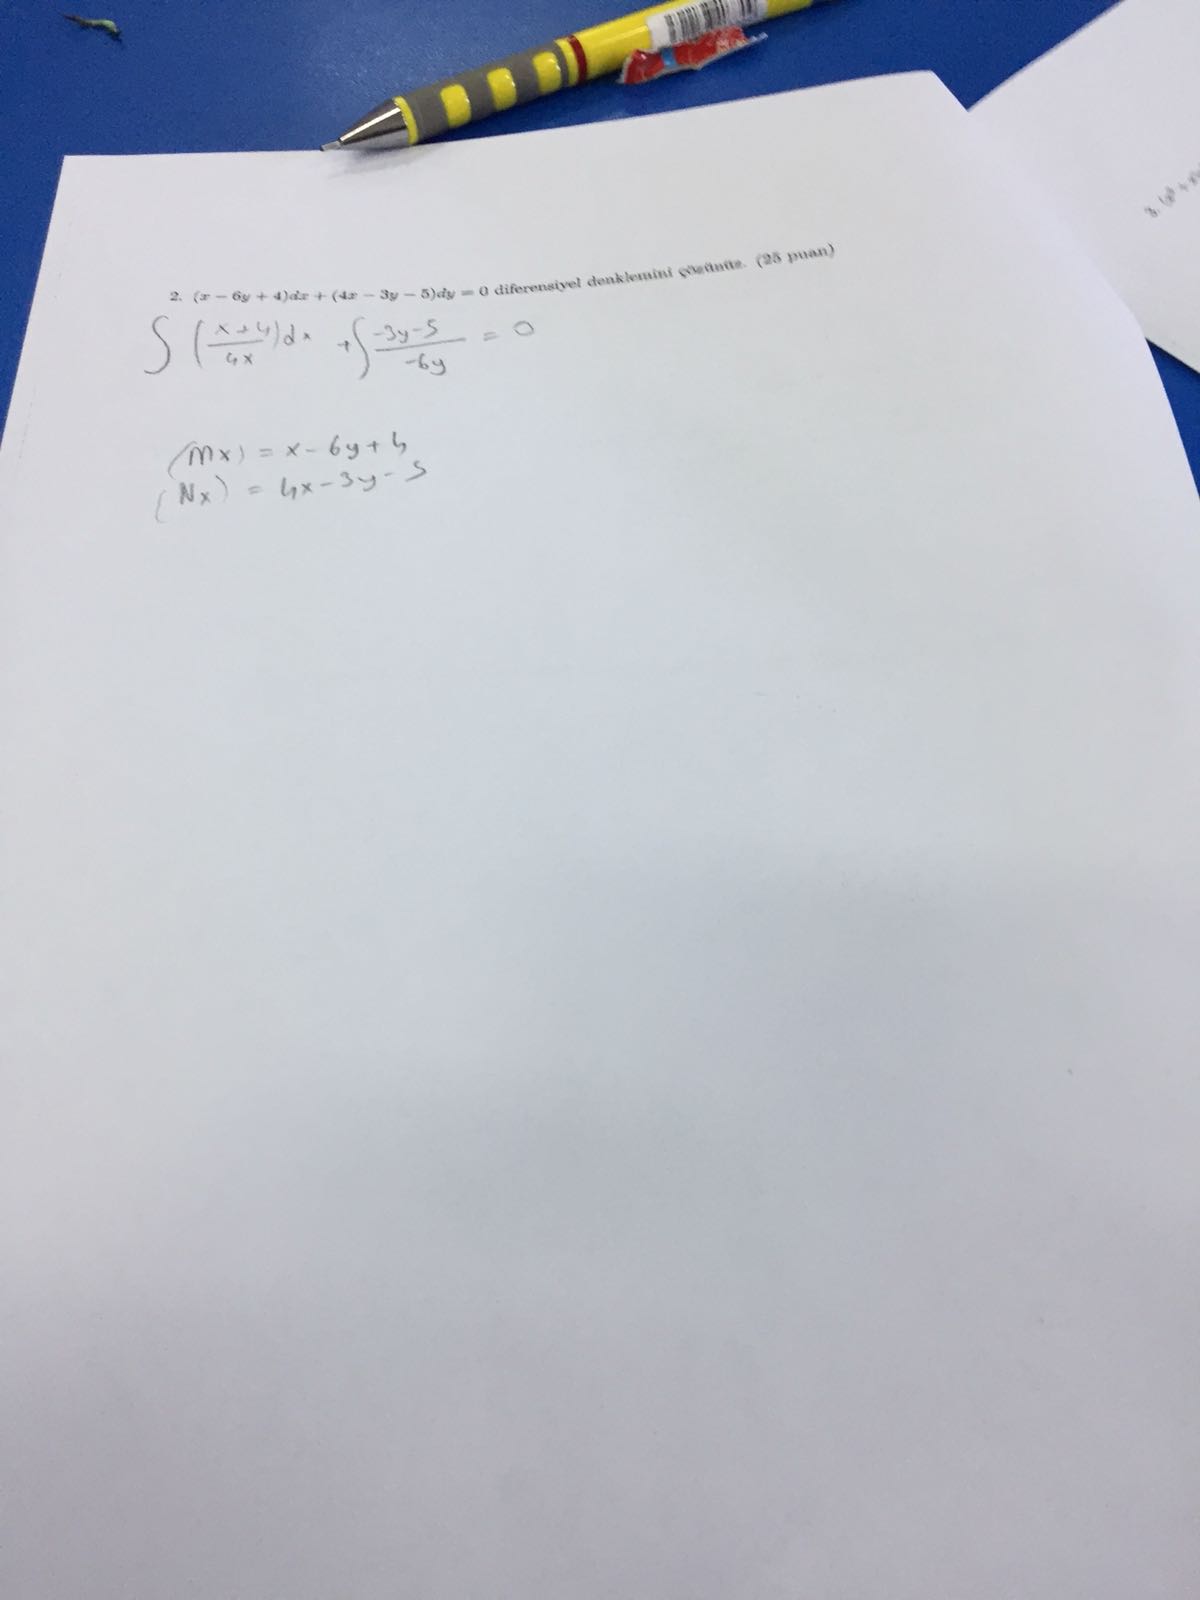 2. (x − 6y + 4)dx + (4x − 3y − 5)dy = 0 diferensiyel denklemini çözünüz. (25 puan)
∫ (x+4/4x)dx + ∫ -3y-5/-6y = 0
(Mx) = x - 6y + 4
(Nx) = 4x - 3y - 5
3.